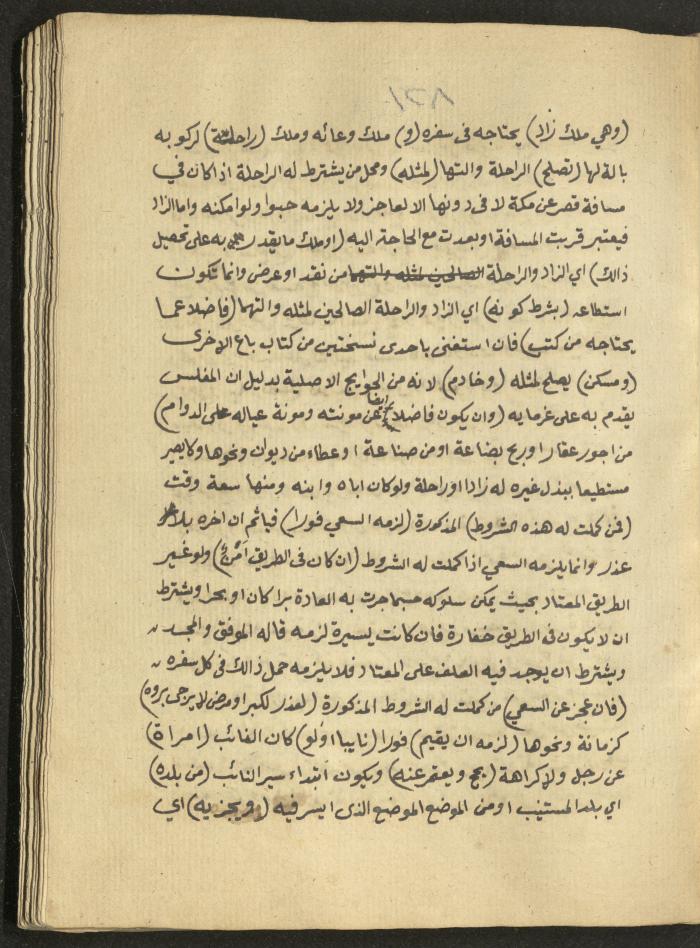 (وهي ملك زاد) يحتاجه في سفره (و) ملك وعائه وملك (راحلة) لركوبه
بالة لها (تصلح) الراحلة والتها (لمثله) ومحل من يشترط له الراحلة اذا كان في
مسافة قصر عن مكة لا في دونها الا لعاجز ولا يلزمه حبوا ولو امكنه واما الزاد
فيعتبر قربت المسافة او بعدت مع الحاجة اليه (او ملك ما يقدر به على تحصيل
ذالك) اي الزاد والراحلة الصالحين لمثله والتهما من نقد او عرض وانما تكون
استطاعه (بشرط كونه) اي الزاد والراحلة الصالحين لمثله والتهما (فاضلا عما
يحتاجه من كتب) فان استغنى باحدى نسختين من كتاب باع الاخرى
(ومسكن) يصلح لمثله (وخادم) لانه من الحوايج الاصلية بدليل ان المفلس
يقدم به على غرمايه (وان يكون فاضلا ايضا عن مونته ومونة عياله على الدوام)
من اجور عقار او ربح بضاعة او من صناعة او عطاء من ديوان ونحوها ولا يصير
مستطيعا ببذل غيره له زادا او راحلة ولو كان اباه وابنه ومنها سعة وقت
(فمن كملت له هذه الشروط) المذكورة (لزمه السعي فورا) فياثم ان اخره بلا
عذر وانما يلزمه السعي اذا كملت له الشروط (ان كان في الطريق امن) ولو غير
الطريق المعتاد بحيث يمكن سلوكه حسبما جرت به العادة برا كان او بحرا ويشترط
ان لا يكون في الطريق خفارة فان كانت يسيرة لزمه قاله الموفق والمجد
ويشترط ان يوجد فيه العلف على المعتاد فلا يلزمه حمل ذالك في كل سفره
(فان عجز عن السعي) من كملت له الشروط المذكورة (لعذر لكبر او مرض لا يرجى بروه)
كزمانة ونحوها (لزمه ان يقيم) فورا (نايبا ولو) كان الفائب (امراة)
عن رجل ولا كراهة (يحج ويعتمر عنه) ويكون ابتداء سير النائب (من بلده)
اي بلد المستنيب او من الموضع الموضع الذي ايسر فيه (ويجزيه) اي